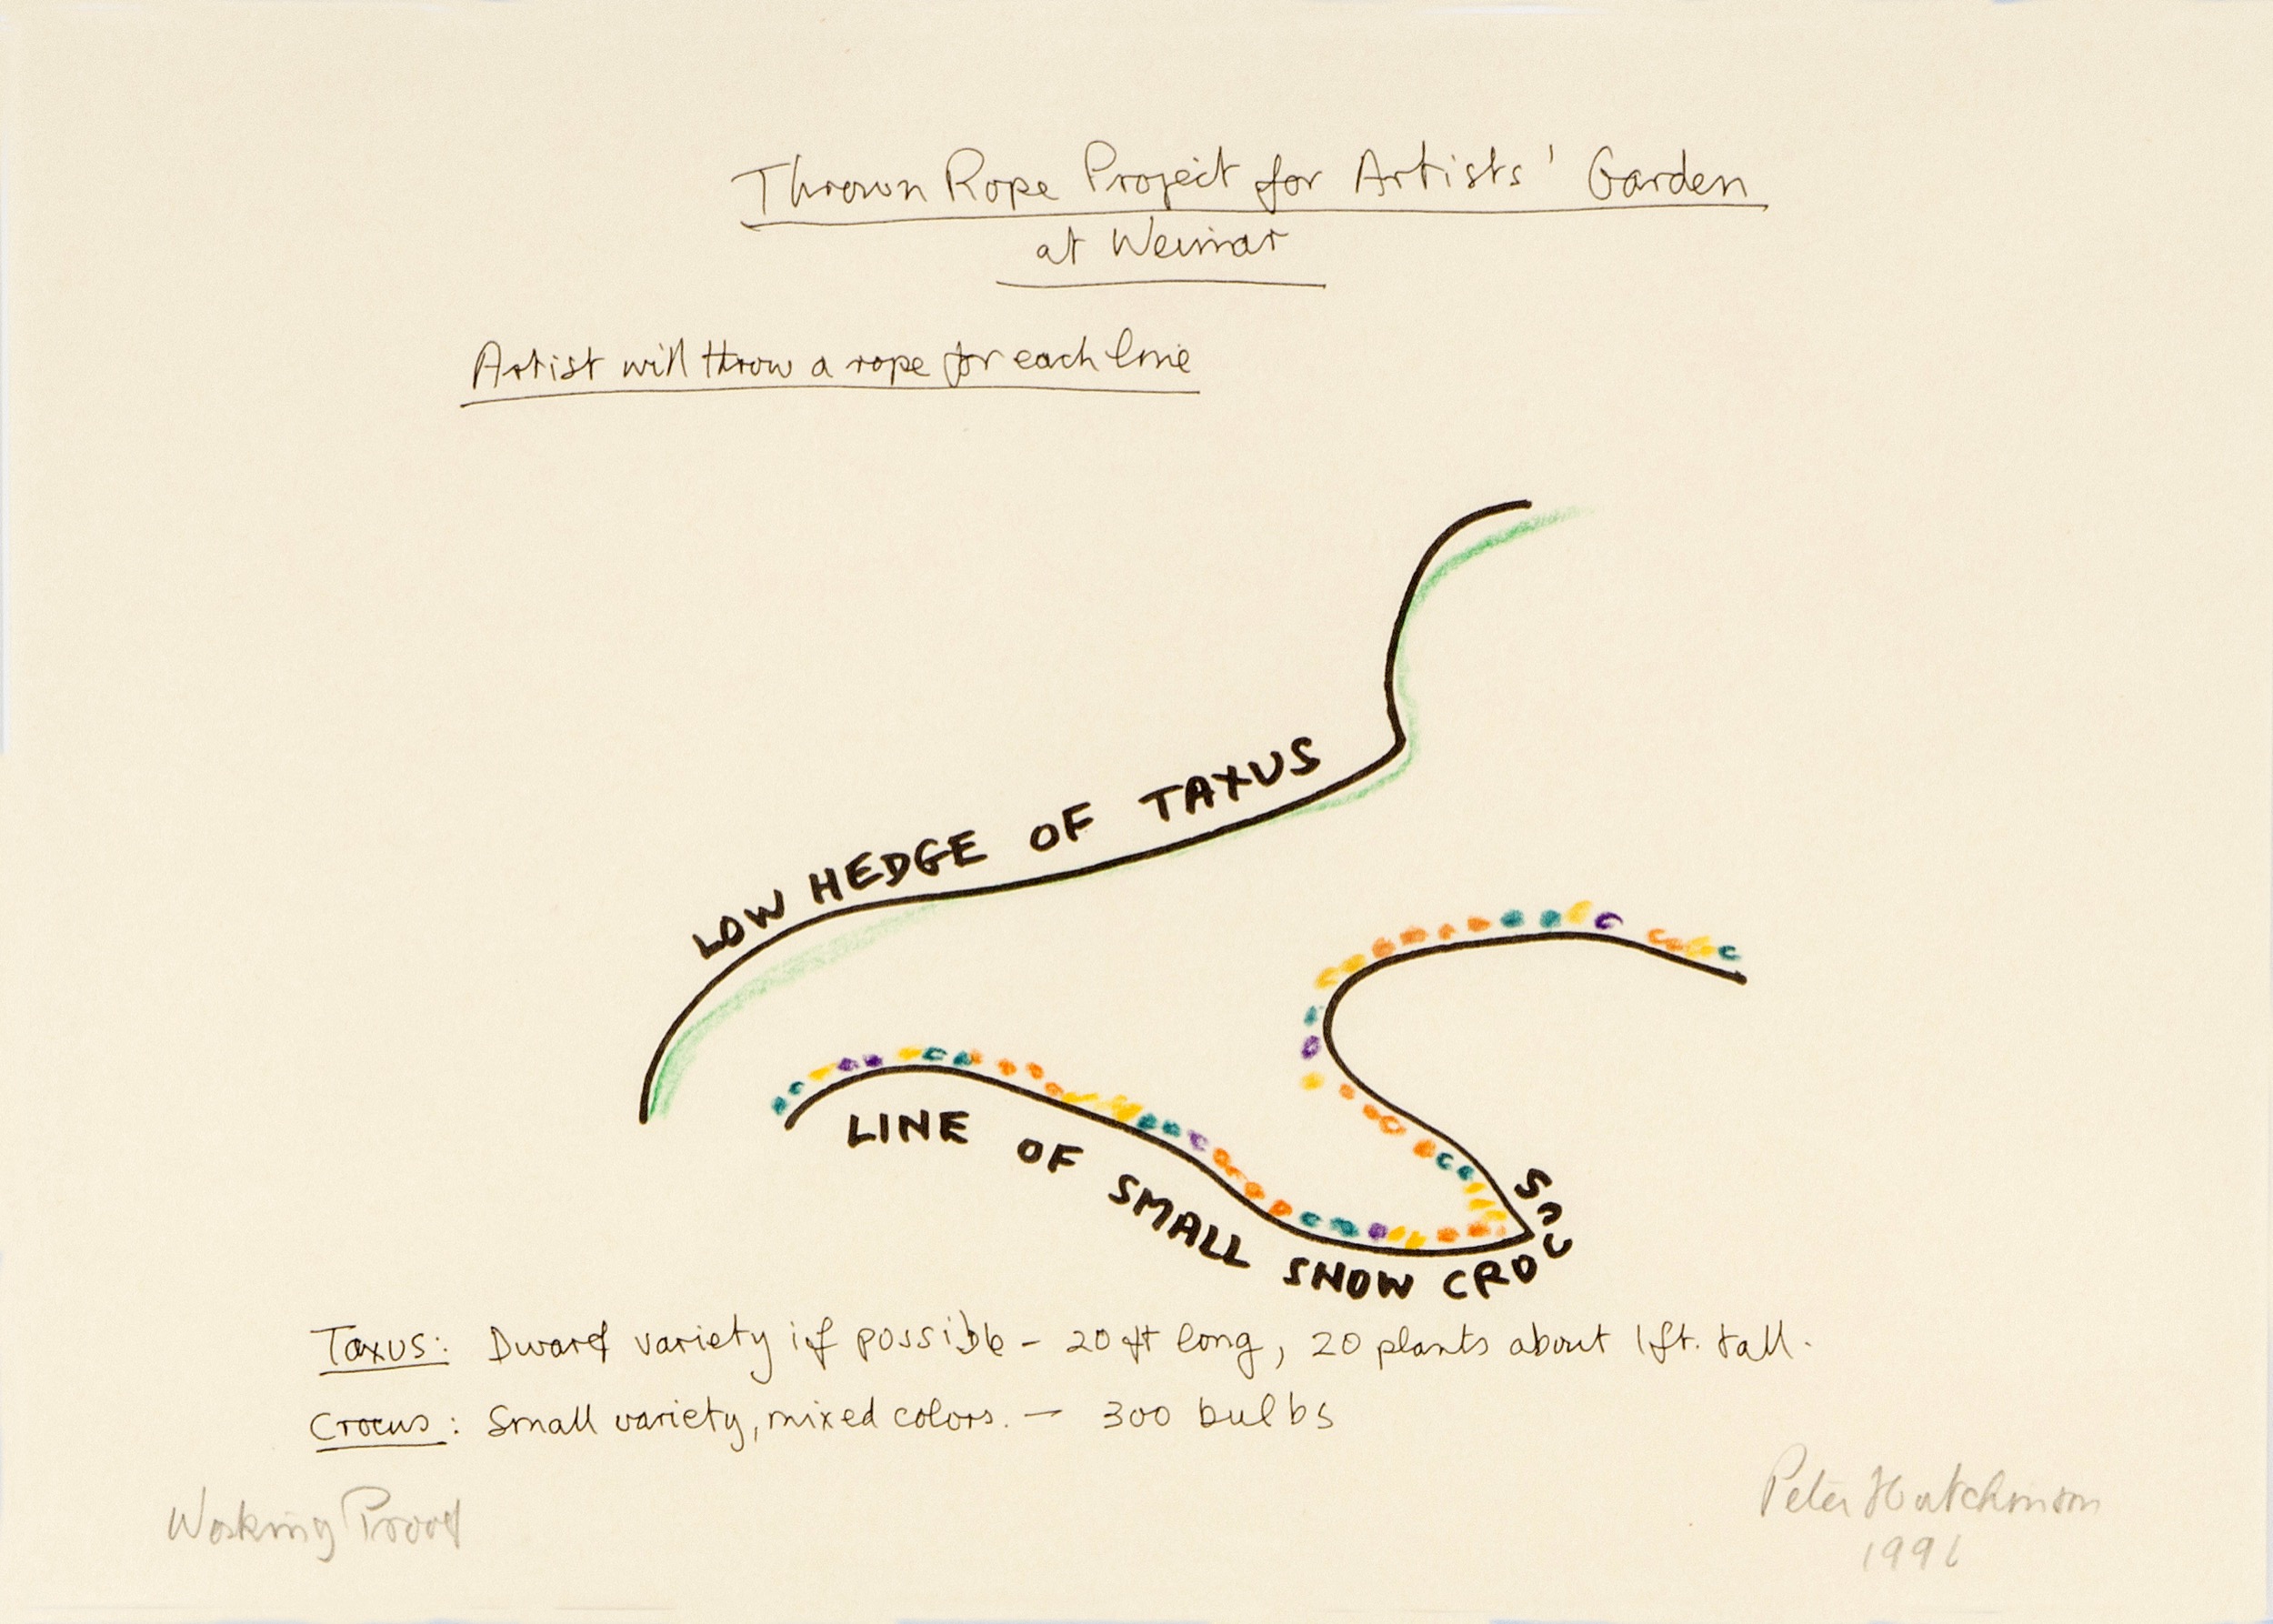 Thrown Rope Project for Artists' Garden
at Weimar
Artist will throw a rope for each line
LOW HEDGE OF TAXUS
LINE OF SMALL SNOW CROCUS
Taxus: Dwarf variety if possible - 20 ft long, 20 plants about 1 ft. tall.
Crocus: Small variety, mixed colors. — 300 bulbs
Working Proof
Peter Hutchinson
1996